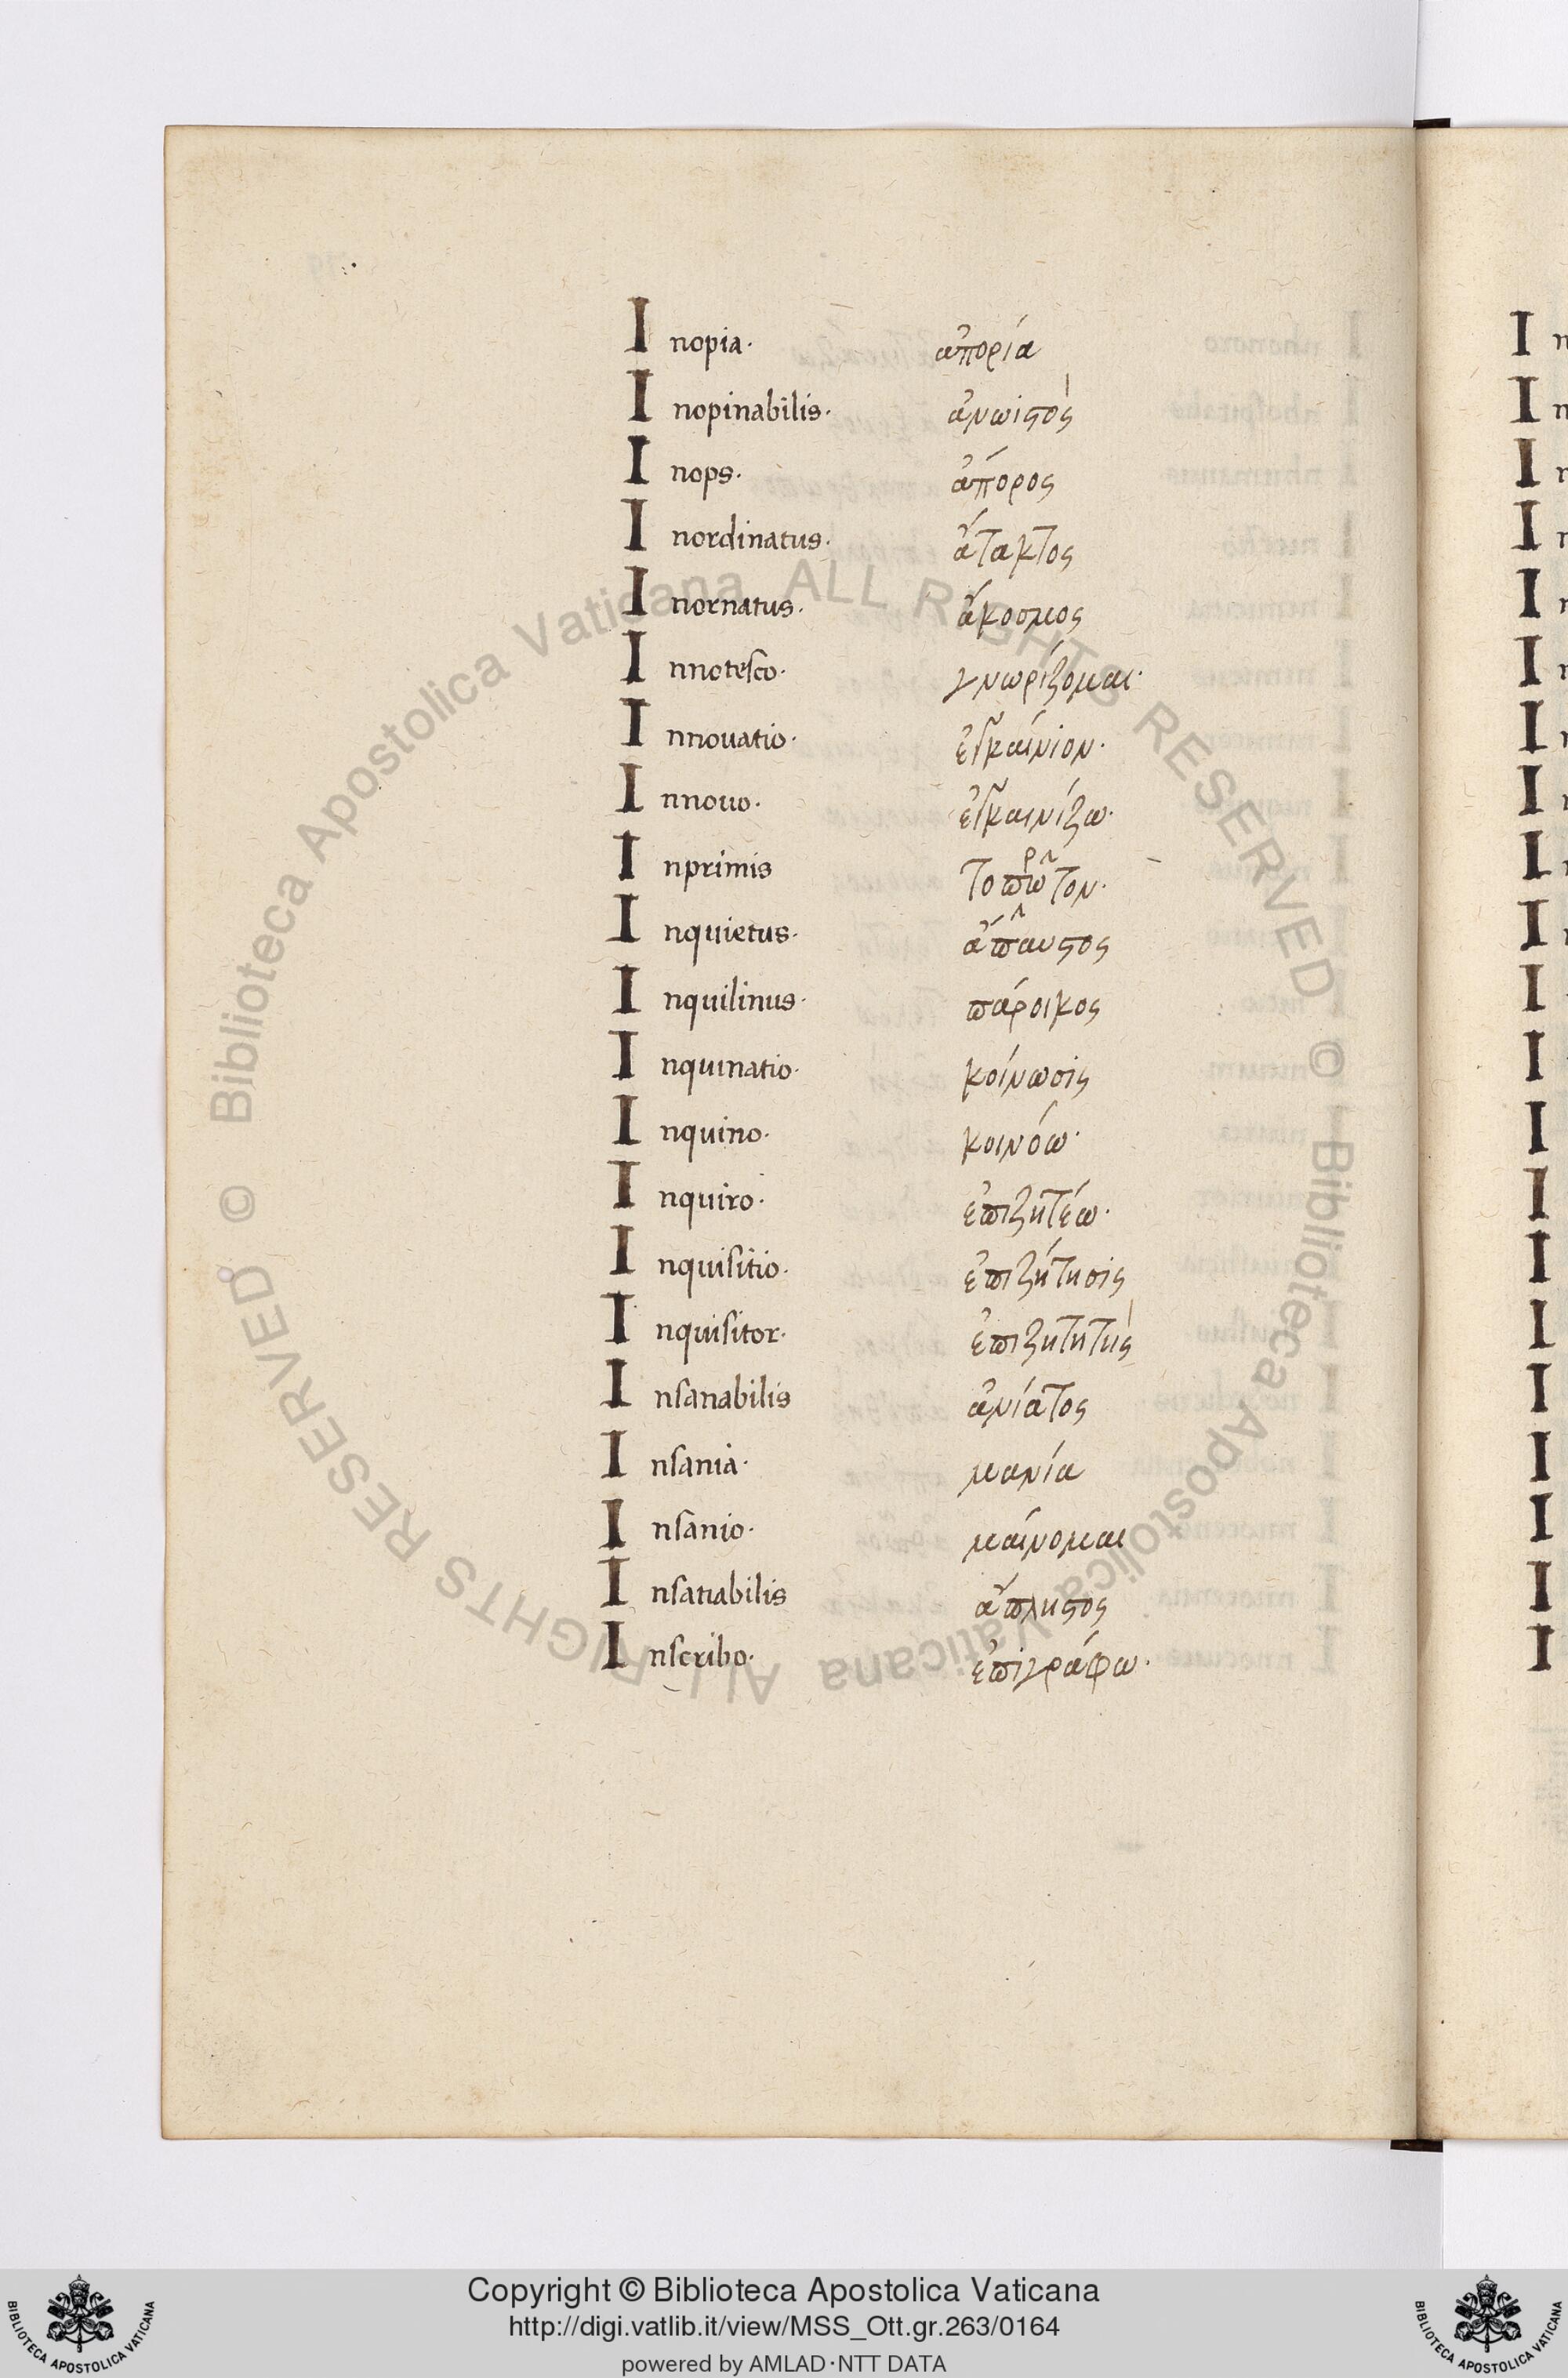 Inopia· ἀπορία
Inopinabilis· ἀνωϊστὸς
Inops· ἄπορος
Inordinatus· ἄτακτος
Inornatus· ἄκοσμος
Innotesco· γνωρίζομαι·
Innouatio· ἐγκαίνιον·
Innouo· ἐγκαινίζω·
Inprimis το πρῶτον·
Inquietus· ἄπαυστος
Inquilinus· πάροικος
Inquinatio· κοίνωσις
Inquino· κοινόω·
Inquiro· ἐπιζητέω·
Inquisitio· ἐπιζήτησις
Inquisitor· ἐπιζητητὴς
Insanabilis ἀνίατος
Insania· μανία
Insanio· μαίνομαι
Insatiabilis ἄπληστος
Inscribo· ἐπιγράφω·
© Biblioteca Apostolica Vaticana ALL RIGHTS RESERVED
© Biblioteca Apostolica Vaticana ALL RIGHTS RESERVED
Copyright © Biblioteca Apostolica Vaticana
http://digi.vatlib.it/view/MSS_Ott.gr.263/0164
powered by AMLAD·NTT DATA
BIBLIOTECA APOSTOLICA VATICANA
BIBLIOTECA APOSTOLICA VATICANA